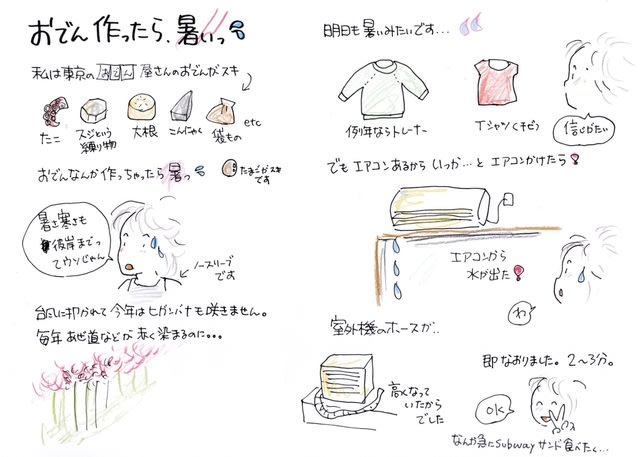 おでん作ったら、暑いっ
私は東京のおでん屋さんのおでんがスキ
たこ
スジという
練り物
大根
こんにゃく
袋もの
etc
おでんなんか作っちゃったら暑っ
たまごがスキ
です
暑さ寒さも
彼岸までっ
てウソじゃん
ノースリーブ
です
台風に叩かれて今年はヒガンバナも咲きません。
毎年あぜ道などが赤く染まるのに。。。
明日も暑いみたいです...
例年ならトレーナー
Tシャツ(チビっ)
信じがたい
でもエアコンあるからいっか…とエアコンかけたら!
エアコンから
水が出た!
わ
室外機のホースが..
高くなって
いたから
でした
即なおりました。2～3分。
OK
なんか急にSubwayサンド食べたく...